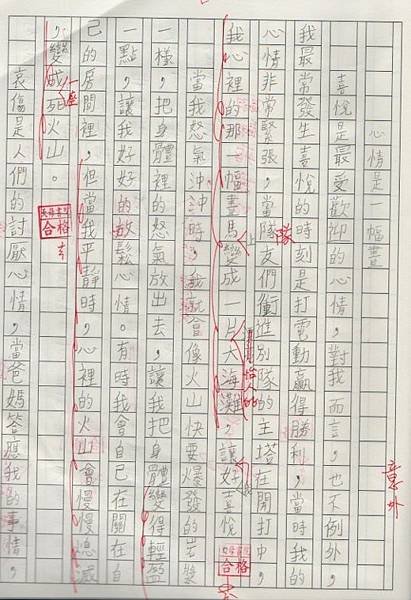 心情是一幅畫
喜悅是最受歡迎的心情，對我而言，也不例外，
意外
我最常發生喜悅的時刻是打電動贏得勝利，當時我的
心情非常緊張，當隊友們衝進別隊的主塔在開打中，
隊
我心裡的那一幅畫馬變成一片大海灘，讓好喜悅
上
怡人的
合格
當我怒氣沖沖時，我就會像火山快要爆發的岩漿
一樣，把身體裡的怒氣放出去，讓我把身體變得輕盈
一點，讓我好好的放鬆心情。有時我會自己在關在自
己的房間裡，但當我平靜時，心裡的火山會慢慢熄滅
，變成死火山。
一座
合格
哀傷是人們的討厭心情，當爸媽答應我的事情，